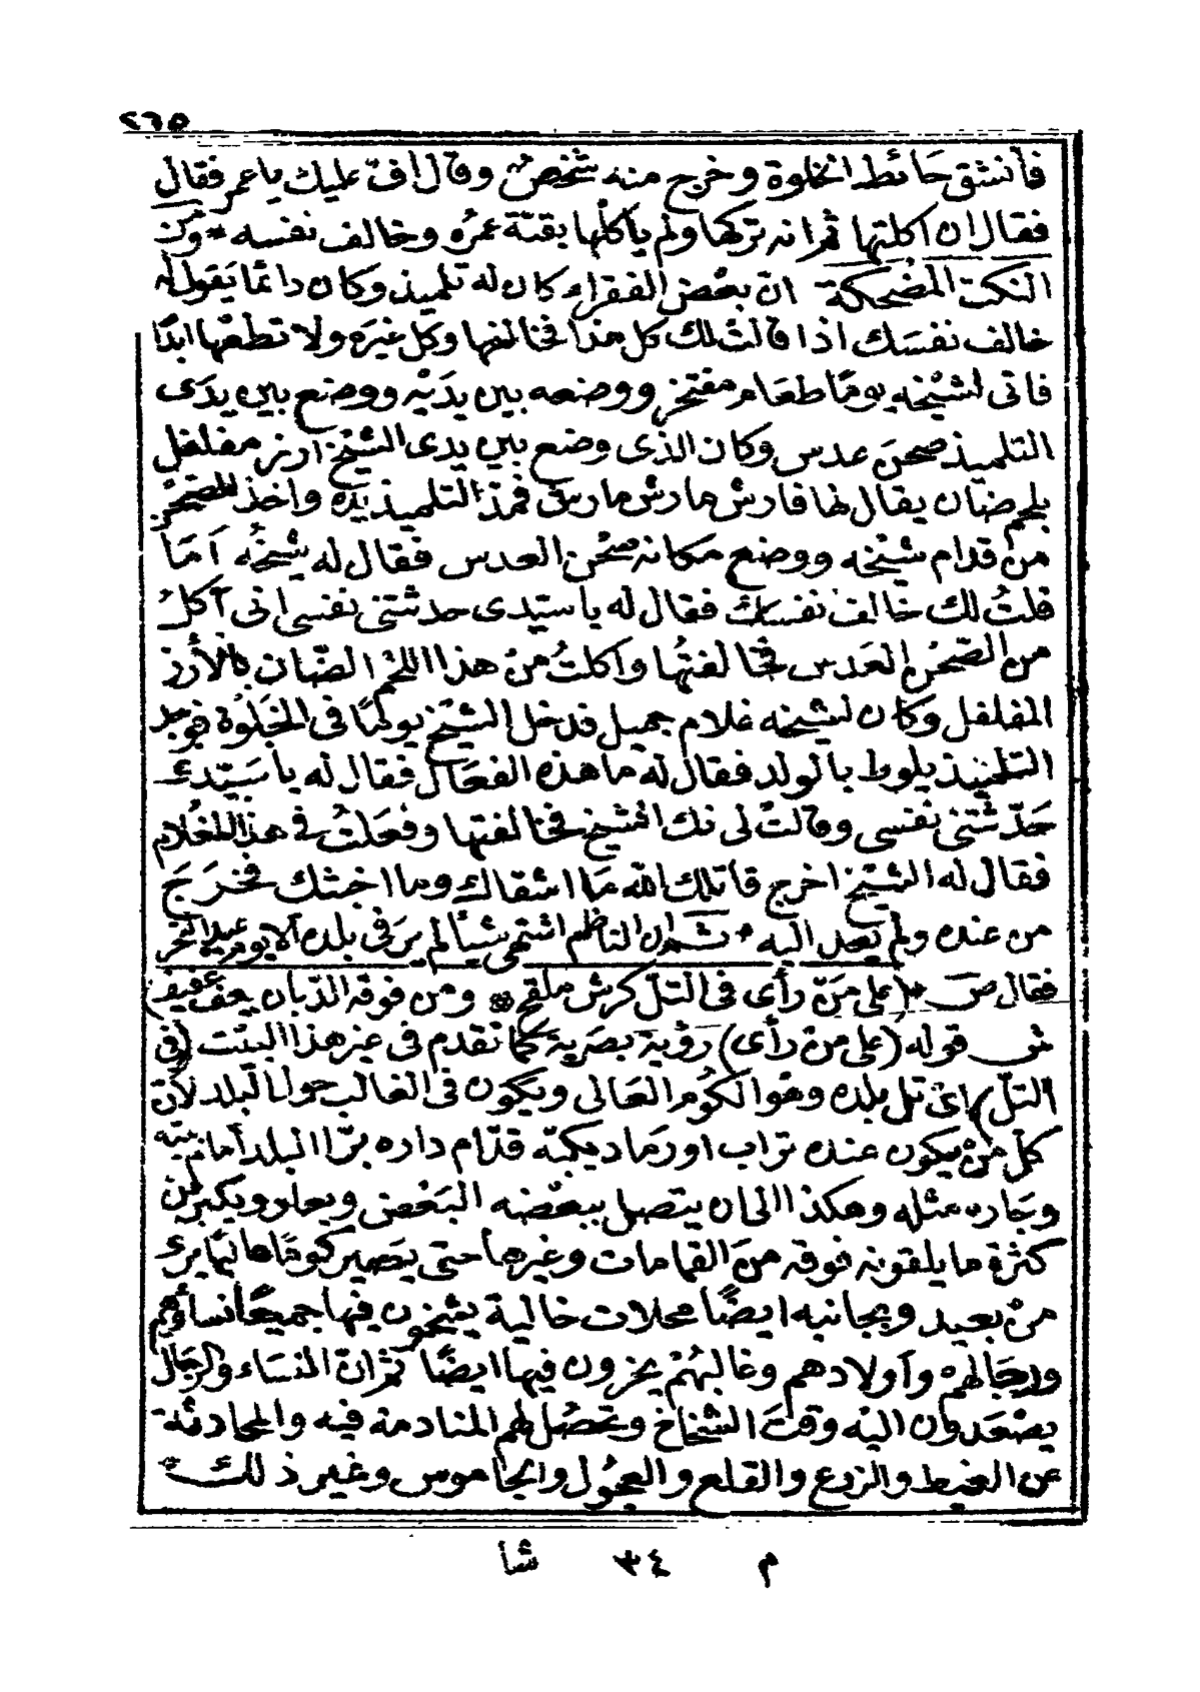 ٢٦٥
فانشق حائط الخلوة وخرج منه شخص وقال اف عليك ياعمر فقال
فقال ان اكلتها ثم انه تركها ولم يأكلها بقية عمره وخالف نفسه * ومن
النكت المضحكة ان بعض الفقراء كان له تلميذ وكان دائما يقول له
خالف نفسك اذا قالت لك كل هذا فخالفها وكل غيره ولا تطعها ابدا
فاتى لشيخه يوما طعام مفتخر ووضعه بين يديه ووضع بين يدى
التلميذ صحن عدس وكان الذى وضع بين يدى الشيخ ارز مفلفل
بلحم ضان يقال لها فارش مارش فمد التلميذ يده واخذ الصحن
من قدام شيخه ووضع مكانه صحن العدس فقال له شيخه اما
قلت لك خالف نفسك فقال له ياسيدى حدثتنى نفسى انى آكل
من الصحن العدس فخالفتها واكلت من هذا اللحم الضان بالأرز
المفلفل وكان لشيخه غلام جميل فدخل الشيخ يوما فى الخلوة فوجد
التلميذ يلوط بالولد فقال له ما هذه الفعال فقال له ياسيدى
حدثتنى نفسى وقالت لى نك الشيخ فخالفتها وفعلت فى هذا الغلام
فقال له الشيخ اخرج قاتلك الله ما اشقاك وما اخبثك فخرج
من عنده ولم يعد اليه * ثم ان الناظم اشتهى شيأ لم ير فى بلده الا يوم عيد النحر
فقال ص * (على من رأى فى التل كرش ملقح * ومن فوقه الدبان يعف عفيف)
ش قوله (على من رأى) رؤية بصرية كما تقدم فى غير هذا البيت (فى
التل) اى تل بلده وهو الكوم العالى ويكون فى الغالب حول البلد لأن
كل من يكون عنده تراب او رماد يكبه قدام داره برا البلد أمام بيته
وجاره مثله وهكذا الى ان يتصل ببعضه البعض ويعلو ويكبر من
كثرة ما يلقونه فوقه من القمامات وغيرها حتى يصير كوما عاليا يرى
من بعيد وبجانبه ايضا محلات خالية يشخون فيها جميعا نساؤهم
ورجالهم وأولادهم وغالبهم يخرون فيها ايضا ثم ان النساء والرجال
يصعدون اليه وقت الشخاخ وتحصل لهم المنادمة فيه والمحادثة
عن الغيط والزرع والقلع والعجول والجاموس وغير ذلك
م ٣٤ شا